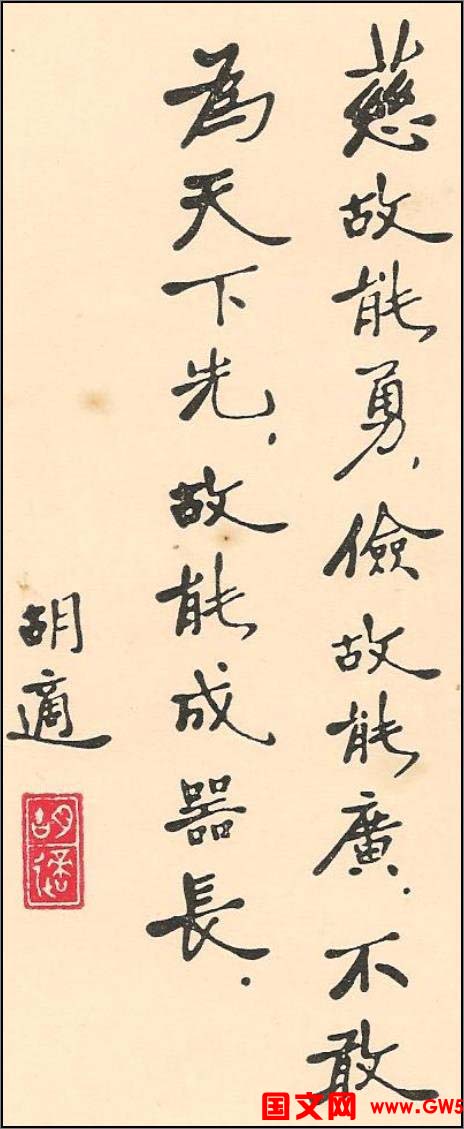 慈故能勇，儉故能廣．不敢
為天下先，故能成器長．
胡適
胡適
国文网 www.GW5